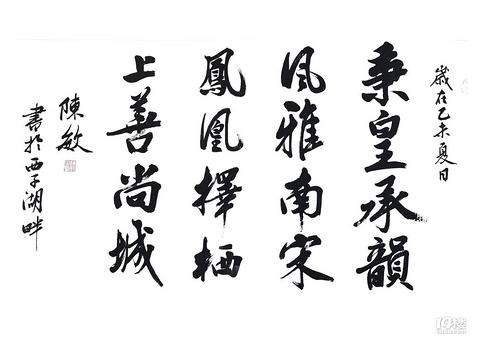 歲在乙未夏日
秉皇承韻
風雅南宋
鳳凰擇栖
上善尚城
陳敏
書於西子湖畔
19楼